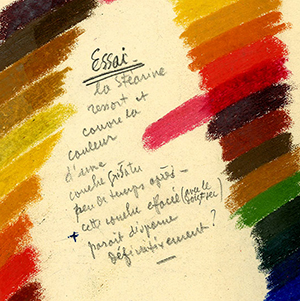 Essai -
la Stéarine
ressort et
couvre la
couleur
d'une
couche
peu de temps après -
+ cette couche effacé (avec le
paraît disparue
définitivement ?